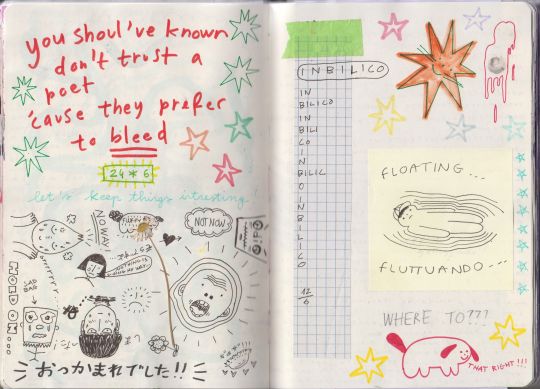 you shoul've known
don't trust a
poet
'cause they prefer
to bleed
24 * 6
let's keep things intresting!
NO WAY!
NOT NOW
SAD
BAG
おっかまれでした!!
INBILICO
IN
BILICO
IN
BILI
CO
I
N
BILIC
O
I
N
B
I
L
I
C
O
12
6
FLOATING...
FLUTTUANDO---
WHERE TO???
THAT RIGHT!!!